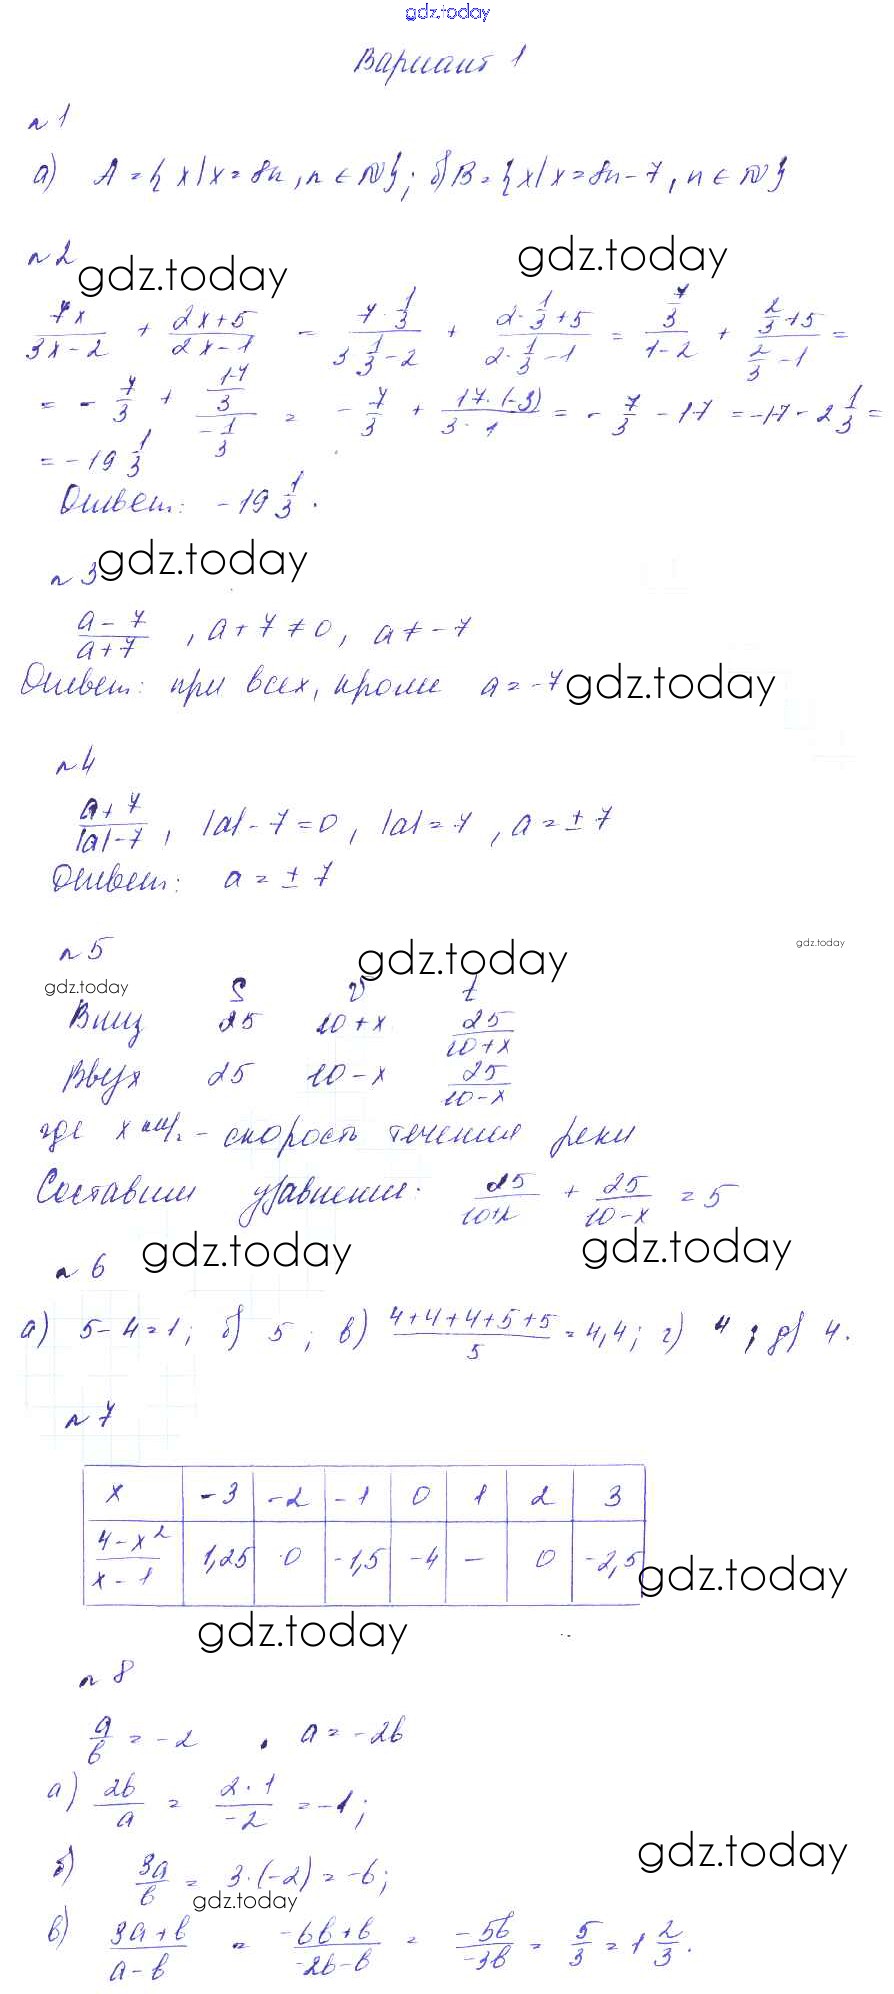 gdz.today
Вариант 1
№1
а) A = {x | x = 8n, n ∈ N}; б) B = {x | x = 8n - 7, n ∈ N}
№2
gdz.today gdz.today
7x/(3x-2) + (2x+5)/(2x-1) = (7·1/3)/(3·1/3-2) + (2·1/3+5)/(2·1/3-1) = (7/3)/(1-2) + (2/3+5)/(2/3-1) =
= - 7/3 + (17/3)/(-1/3) = - 7/3 + (17·(-3))/(3·1) = - 7/3 - 17 = -17 - 2 1/3 =
= -19 1/3
Ответ: -19 1/3.
№3
gdz.today
(a-7)/(a+7), a+7 ≠ 0, a ≠ -7
Ответ: при всех, кроме a = -7
gdz.today
№4
(a+7)/(|a|-7), |a|-7 = 0, |a| = 7, a = ±7
Ответ: a = ±7
№5
gdz.today gdz.today
gdz.today
S v t
Вниз 25 10+x 25/(10+x)
Вверх 25 10-x 25/(10-x)
где x км/ч - скорость течения реки
Составим уравнение: 25/(10+x) + 25/(10-x) = 5
№6
gdz.today gdz.today
а) 5-4=1; б) 5; в) (4+4+4+5+5)/5 = 4,4; г) 4; д) 4.
№7
x -3 -2 -1 0 1 2 3
(4-x²)/(x-1) 1,25 0 -1,5 -4 — 0 -2,5
gdz.today
gdz.today
№8
a/b = -2, a = -2b
а) 2b/a = (2·1)/(-2) = -1;
gdz.today
б) 3a/b = 3·(-2) = -6;
gdz.today
в) (3a+b)/(a-b) = (-6b+b)/(-2b-b) = (-5b)/(-3b) = 5/3 = 1 2/3.